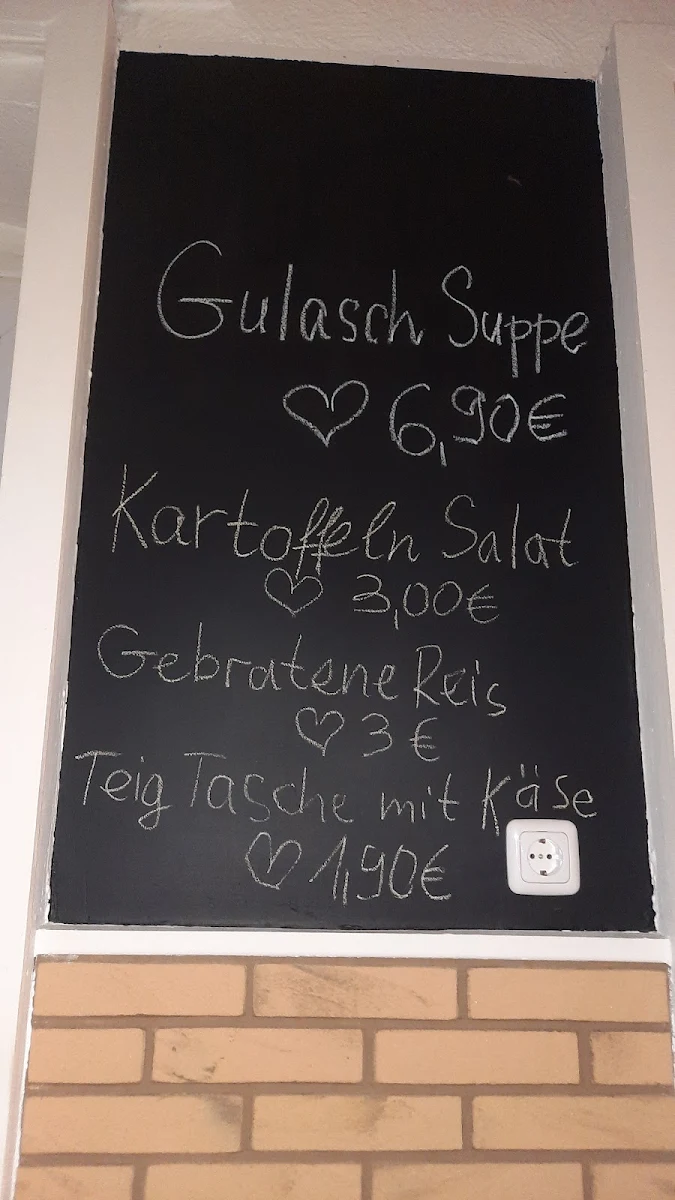 Gulasch Suppe
♡ 6,90€
Kartoffeln Salat
♡ 3,00€
Gebratene Reis
♡ 3 €
Teig Tasche mit Käse
♡ 1,90€